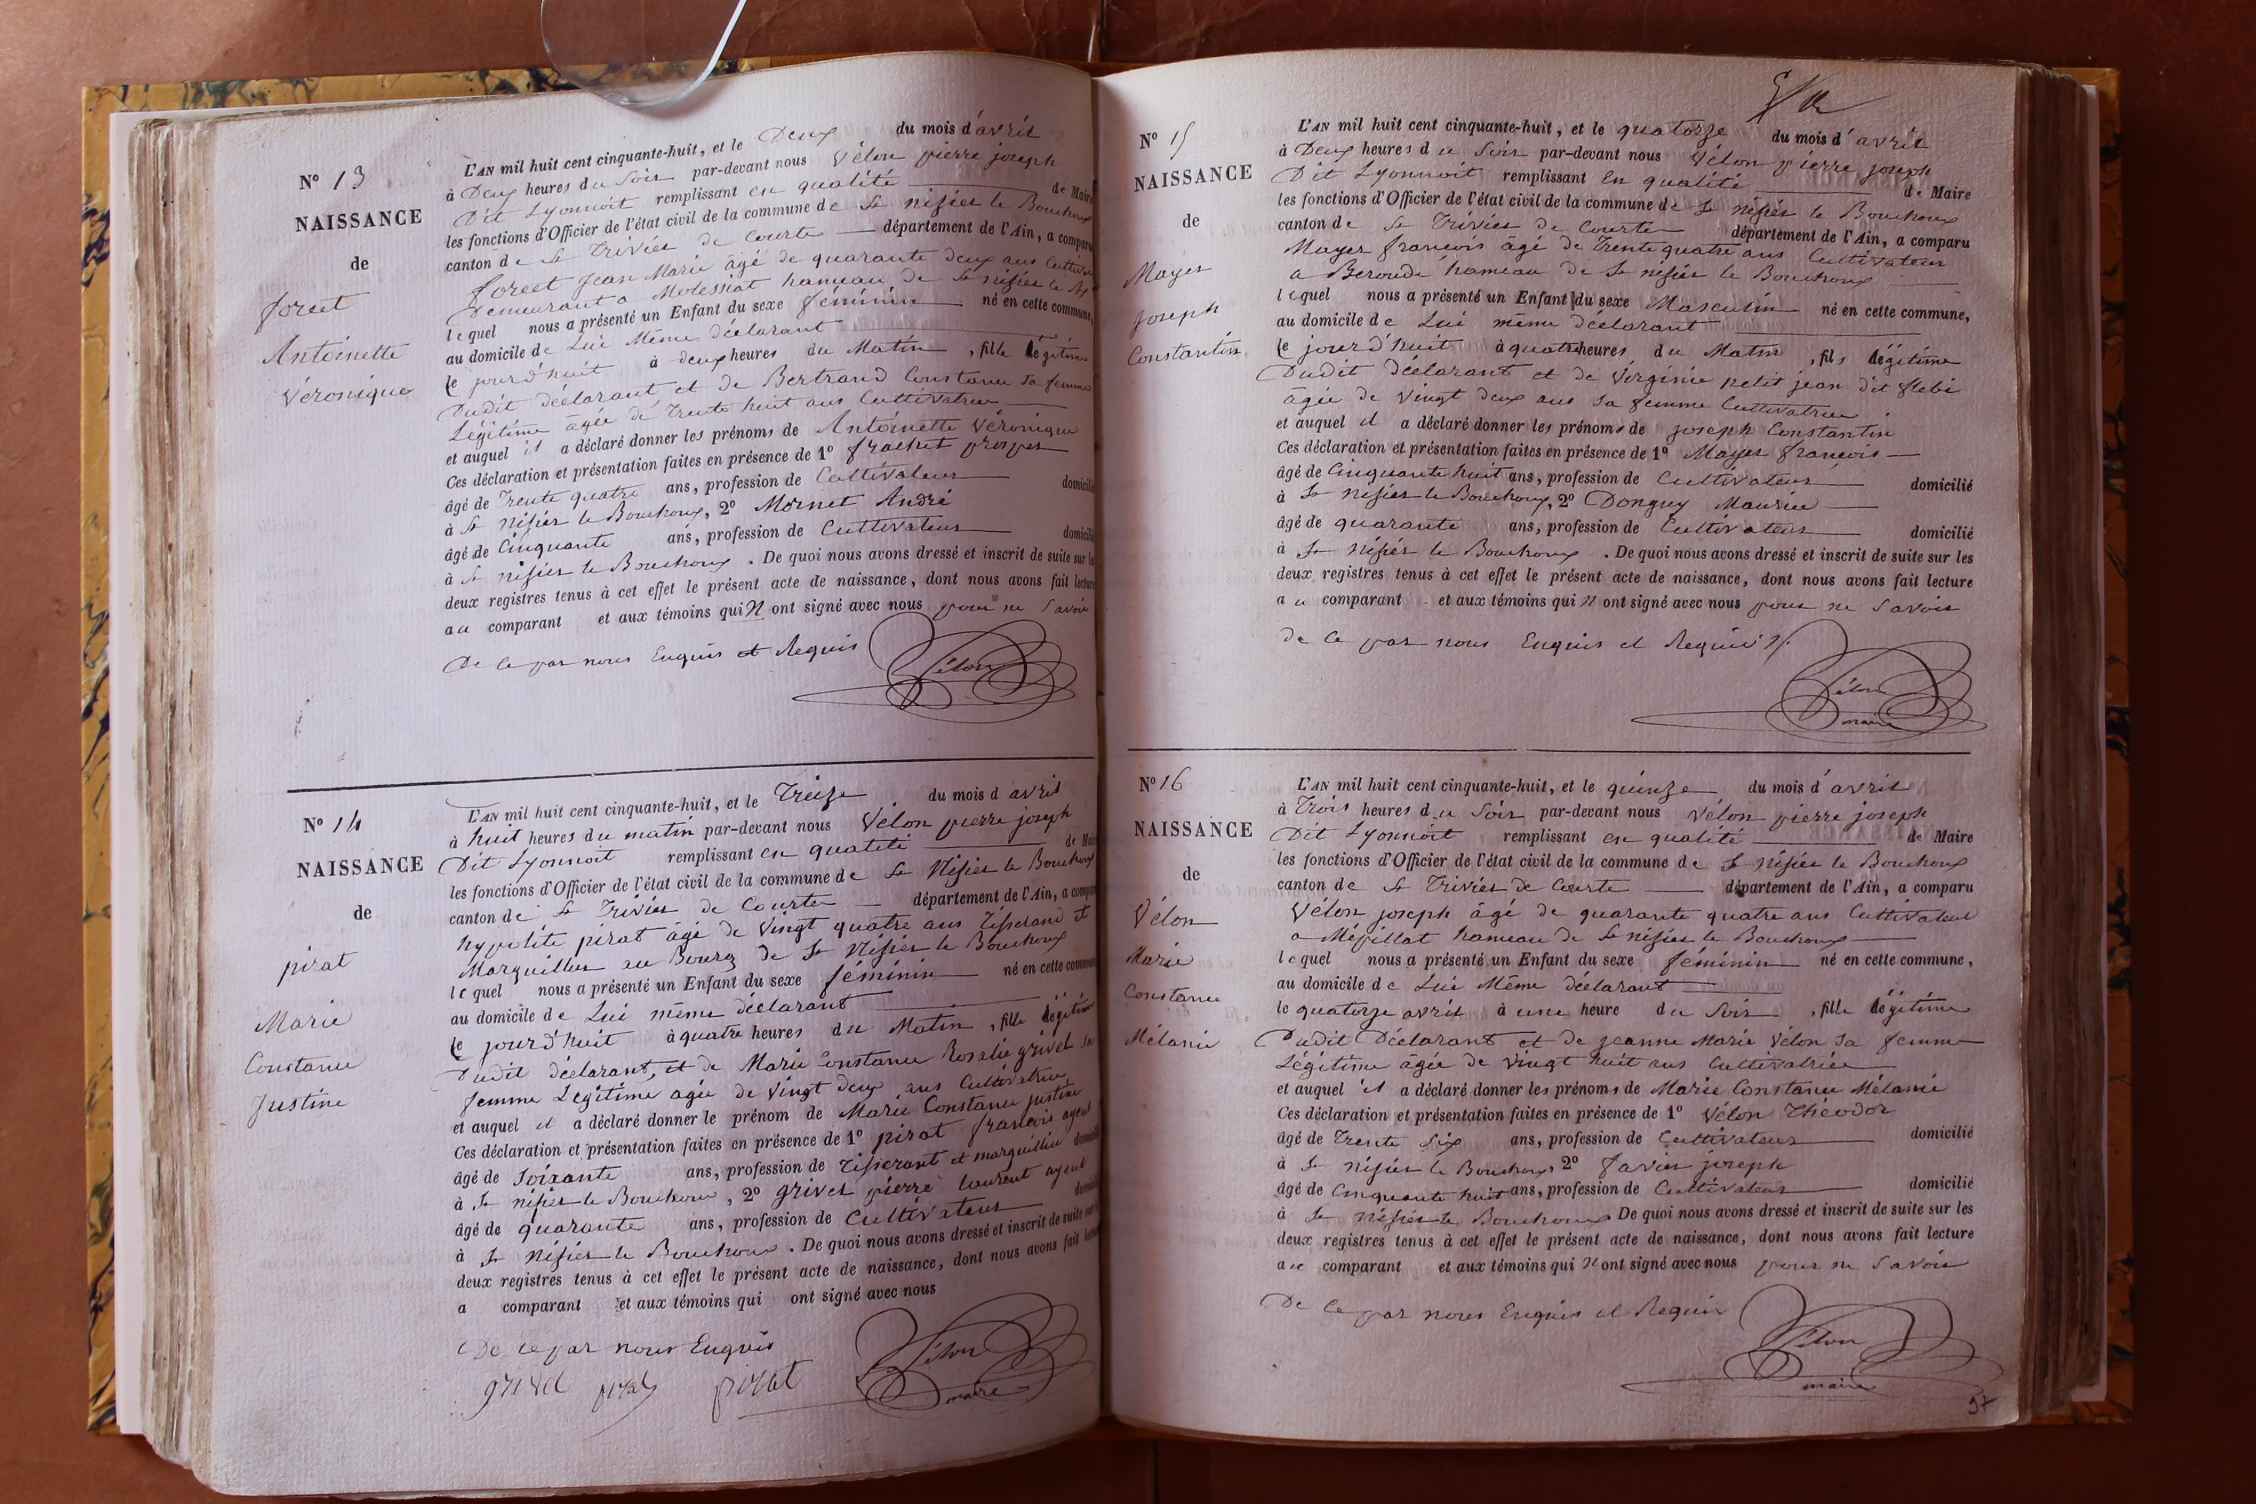 N° 13
NAISSANCE
de
foret
Antoinette
Véronique
L'AN mil huit cent cinquante-huit, et le Deux du mois d'avril
à Deux heures du Soir par-devant nous Vélon pierre joseph
Dit Lyonnoit remplissant en qualité de Maire
les fonctions d'Officier de l'état civil de la commune de St nisier le Bouchoux
canton de St Trivier de Courte département de l'Ain, a comparu
foret Jean Marie âgé de quarante deux ans Cultivat
Demeurant a Molessiat hameau de St nisier le
lequel nous a présenté un Enfant du sexe féminin né en cette commune,
au domicile de Lui Même déclarant
le jourd'huit à deux heures du Matin, fille légitime
Dudit déclarant et de Bertrand Constance sa femme
Légitime âgée de trente huit ans Cultivatrice
et auquel il a déclaré donner les prénoms de Antoinette Véronique
Ces déclaration et présentation faites en présence de 1° frachet prosper
âgé de Trente quatre ans, profession de Cultivateur domicilié
à St nisier le Bouchoux, 2° Mornet André
âgé de Cinquante ans, profession de Cultivateur domicilié
à St nisier le Bouchoux. De quoi nous avons dressé et inscrit de suite sur les
deux registres tenus à cet effet le présent acte de naissance, dont nous avons fait lecture
au comparant et aux témoins qui N ont signé avec nous pour ne Savoir
De ce par nous Enquis et Requis
Vélon
N° 14
NAISSANCE
de
pirat
Marie
Constance
Justine
L'AN mil huit cent cinquante-huit, et le Treize du mois d avril
à huit heures du matin par-devant nous Vélon pierre joseph
Dit Lyonnoit remplissant en qualité de Maire
les fonctions d'Officier de l'état civil de la commune de St Nisier le Bouchoux
canton de St Trivier de Courte département de l'Ain, a comparu
hypolite pirat âgé de Vingt quatre ans Tisserand et
Marguillier au Bourg de St Nisier le Bouchoux
lequel nous a présenté un Enfant du sexe féminin né en cette commune
au domicile de Lui même déclarant
le jourd'huit à quatre heures du Matin, fille légitime
Dudit déclarant, et de Marie Constance Rosalie grivel sa
femme Légitime agée de Vingt deux ans Cultivatrice
et auquel il a déclaré donner le prénom de Marie Constance justine
Ces déclaration et présentation faites en présence de 1° pirat francois ayeul
âgé de Soixante ans, profession de Tisserant et marguillier domicilié
à St nisier le Bouchoux, 2° grivel pierre laurent ayeul
âgé de quarante ans, profession de Cultivateur domicilié
à St Nisier le Bouchoux. De quoi nous avons dressé et inscrit de suite sur les
deux registres tenus à cet effet le présent acte de naissance, dont nous avons fait lecture
a comparant et aux témoins qui ont signé avec nous
De ce par nous Enquis
grivel pirat pirat Vélon
maire
N° 15
NAISSANCE
de
Mayer
Joseph
Constantin
L'AN mil huit cent cinquante-huit, et le quatorze du mois d'avril
à Deux heures du Soir par-devant nous Vélon pierre joseph
Dit Lyonnoit remplissant En qualité de Maire
les fonctions d'Officier de l'état civil de la commune de St nisier le Bouchoux
canton de St Trivier de Courte département de l'Ain, a comparu
Mayer francois âgé de Trente quatre ans Cultivateur
a Beroude hameau de St nisier le Bouchoux
lequel nous a présenté un Enfant du sexe Masculin né en cette commune,
au domicile de Lui même déclarant
le jourd'huit à quatre heures du Matin, fils légitime
Dudit déclarant et de Virginie petit jean dit flebi
âgée de vingt deux ans sa femme Cultivatrice
et auquel il a déclaré donner les prénoms de joseph Constantin
Ces déclaration et présentation faites en présence de 1° Mayer francois
âgé de Cinquante huit ans, profession de Cultivateur domicilié
à St nisier le Bouchoux, 2° Donguy Maurice
âgé de quarante ans, profession de Cultivateur domicilié
à St nisier le Bouchoux. De quoi nous avons dressé et inscrit de suite sur les
deux registres tenus à cet effet le présent acte de naissance, dont nous avons fait lecture
au comparant et aux témoins qui N ont signé avec nous pour ne Savoir
de ce par nous Enquis et Requis
Vélon
maire
N° 16
NAISSANCE
de
Vélon
Marie
Constance
Mélanie
L'AN mil huit cent cinquante-huit, et le quinze du mois d'avril
à Trois heures du Soir par-devant nous Vélon pierre joseph
Dit Lyonnoit remplissant en qualité de Maire
les fonctions d'Officier de l'état civil de la commune de St nisier le Bouchoux
canton de St Trivier de Courte département de l'Ain, a comparu
Vélon joseph âgé de quarante quatre ans Cultivateur
a Mépillat hameau de St nisier le Bouchoux
lequel nous a présenté un Enfant du sexe féminin né en cette commune,
au domicile de Lui Même déclarant
le quatorze avril à une heure du Soir, fille légitime
Dudit Déclarant et de jeanne Marie Vélon sa femme
Légitime âgée de Vingt huit ans Cultivatrice
et auquel il a déclaré donner les prénoms de Marie Constance Mélanie
Ces déclaration et présentation faites en présence de 1° Vélon Théodor
âgé de Trente Six ans, profession de Cultivateur domicilié
à St nisier le Bouchoux 2° favier joseph
âgé de Cinquante huit ans, profession de Cultivateur domicilié
à St nisier le Bouchoux De quoi nous avons dressé et inscrit de suite sur les
deux registres tenus à cet effet le présent acte de naissance, dont nous avons fait lecture
au comparant et aux témoins qui N ont signé avec nous pour ne Savoir
De ce par nous Enquis et Requis
Vélon
maire
97